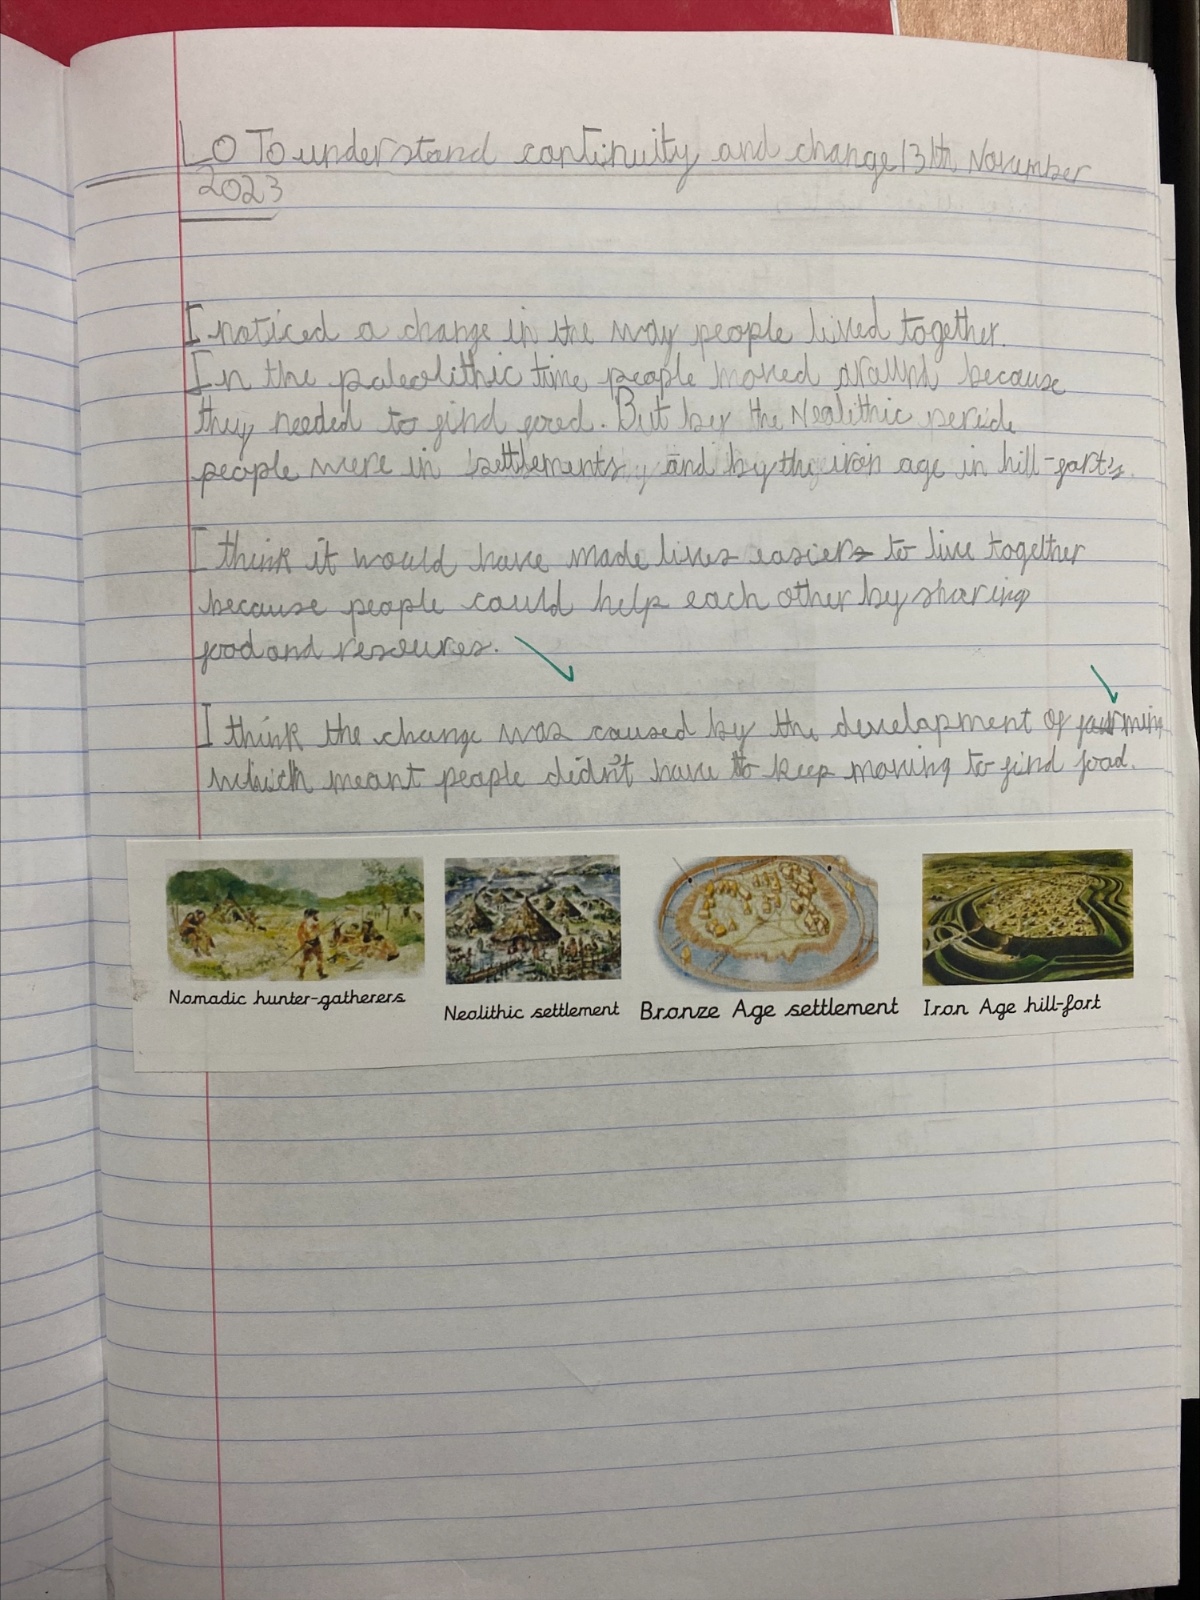 LO To understand continuity and change 13th November
2023
I noticed a change in the way people lived together.
In the paleolithic time people moved around because
they needed to find food. But by the Nealithic periode
people were in settlements, and by the iron age in hill-fort's.
I think it would have made lives easier to live together
because people could help each other by sharing
food and resources.
I think the change was caused by the development of farming
which meant people didn't have to keep moving to find food.
Nomadic hunter-gatherers
Neolithic settlement
Bronze Age settlement
Iron Age hill-fort